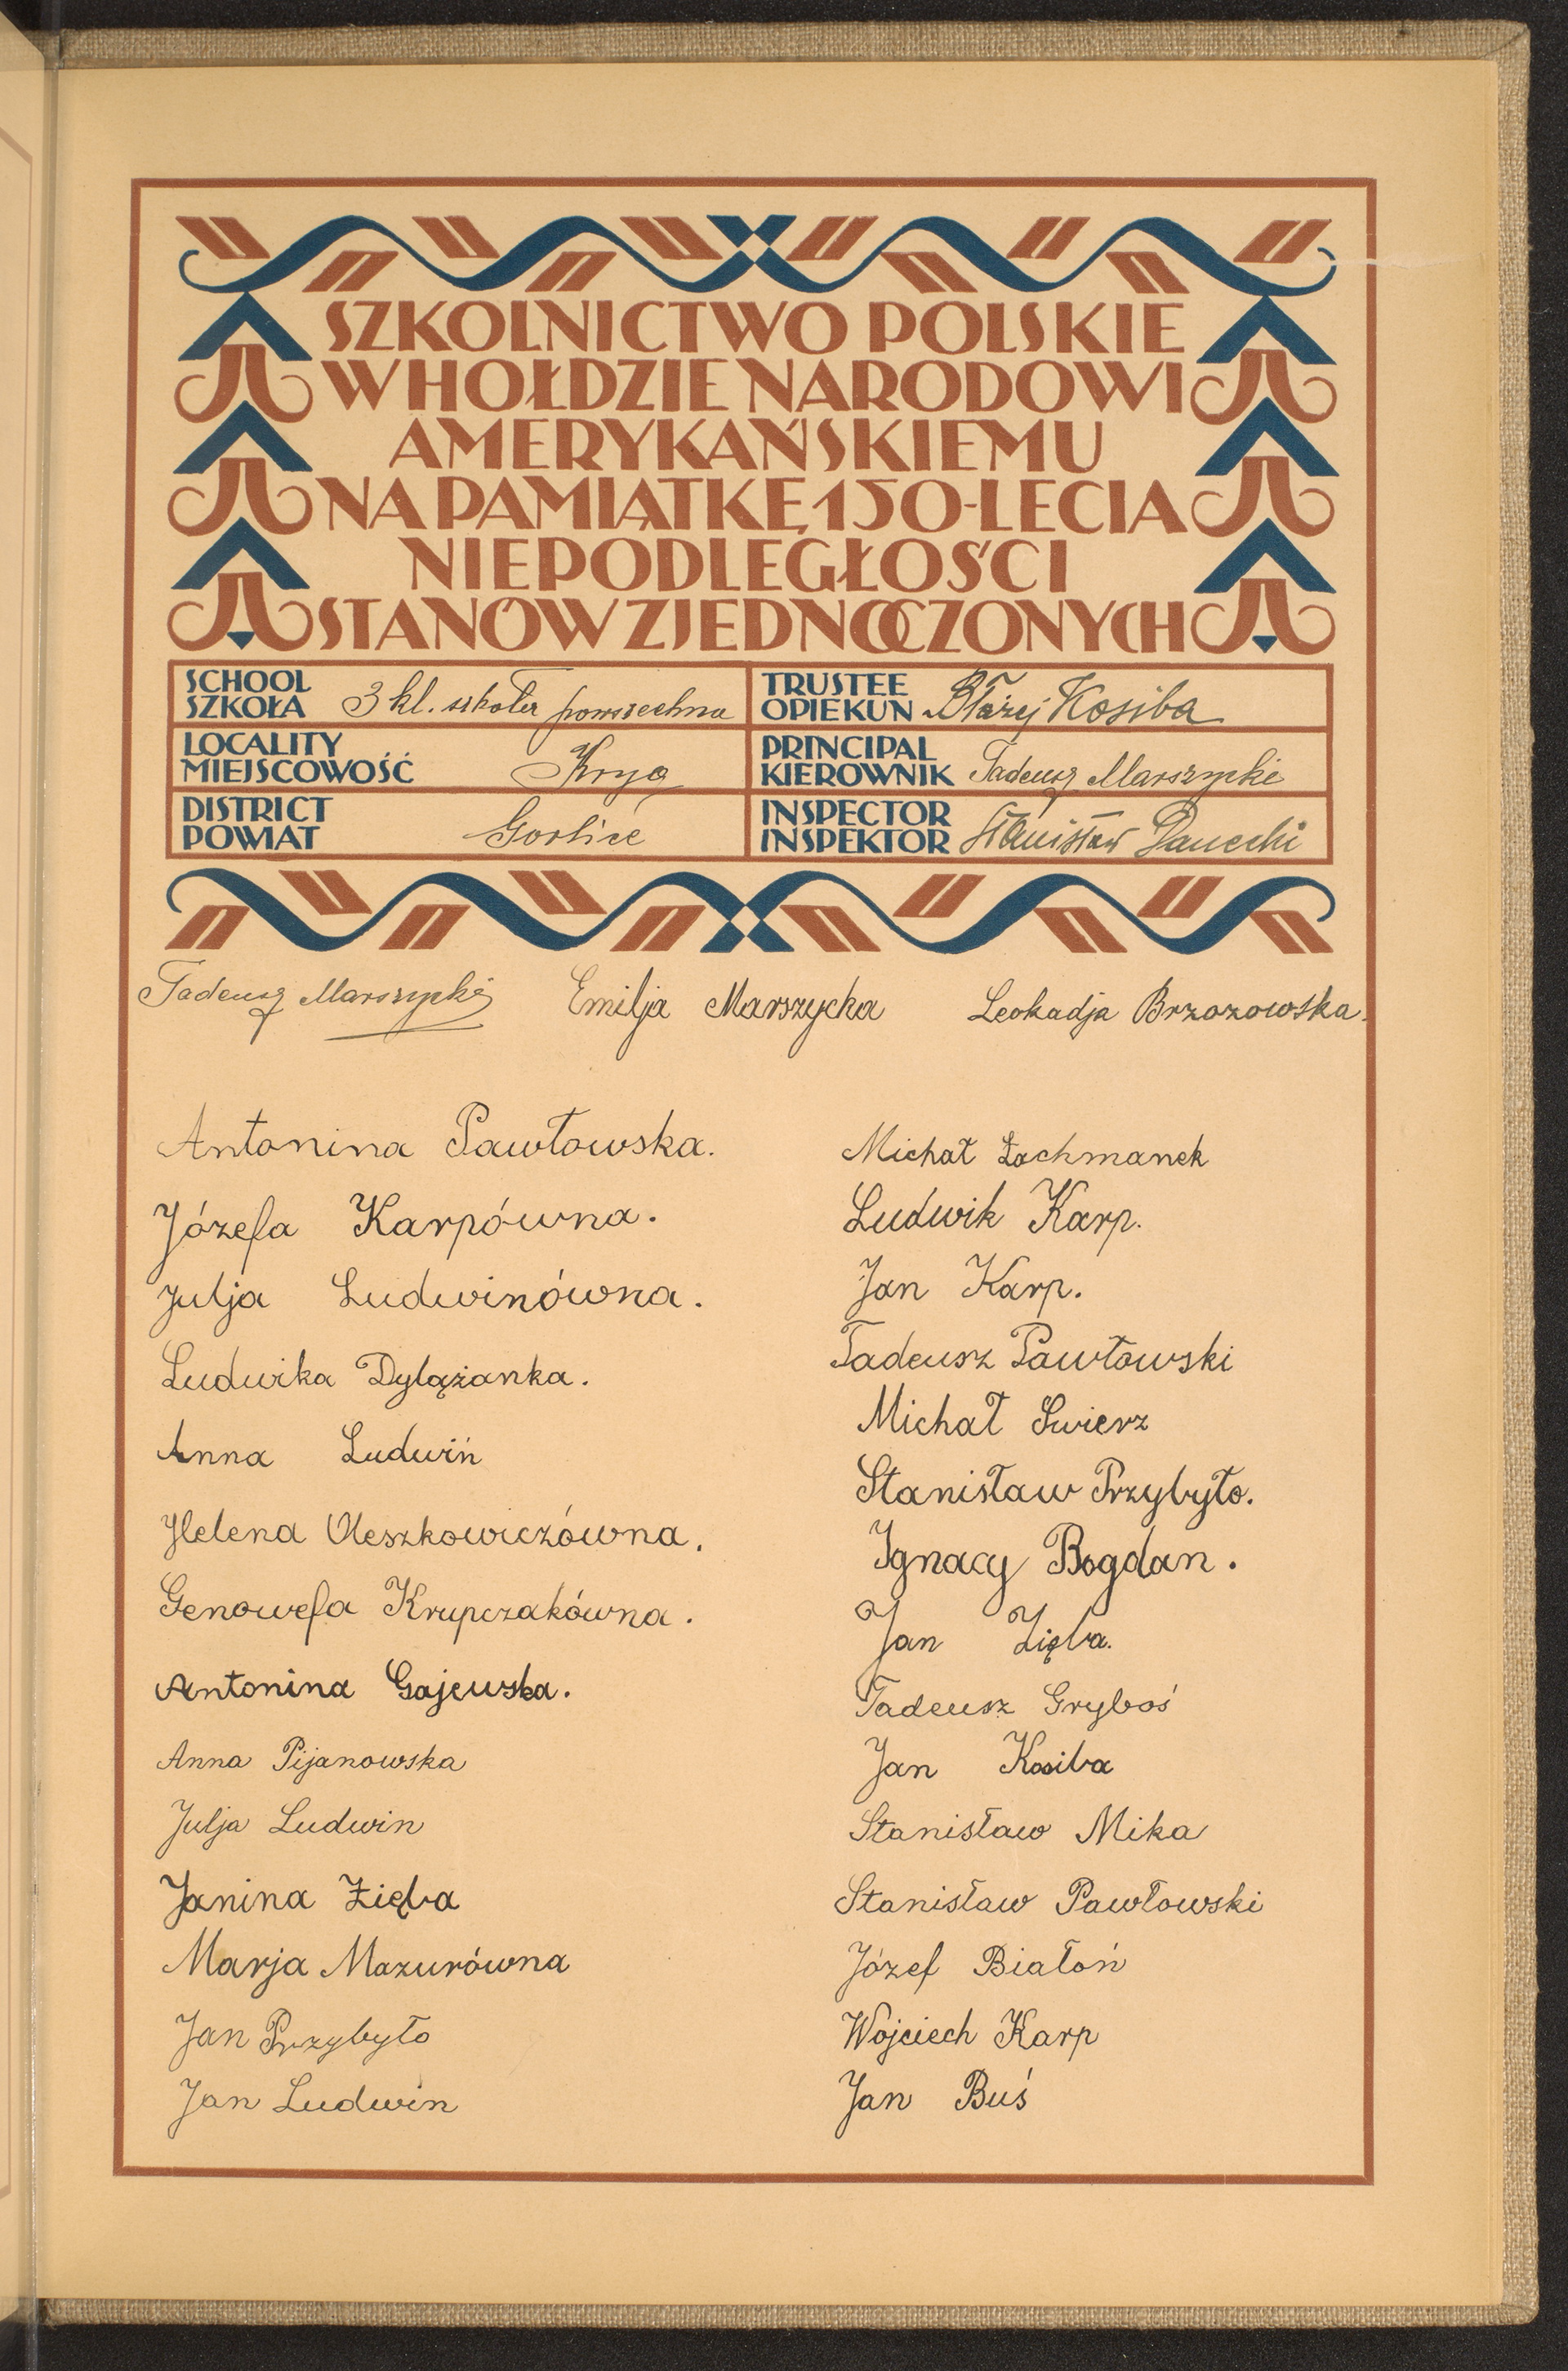 SZKOLNICTWO POLSKIE
W HOŁDZIE NARODOWI
AMERYKAŃSKIEMU
NA PAMIĄTKĘ 150-LECIA
NIEPODLEGŁOŚCI
STANÓW ZJEDNOCZONYCH
SCHOOL
SZKOŁA 3 kl. szkoła powszechna
TRUSTEE
OPIEKUN Błażej Kosiba
LOCALITY
MIEJSCOWOŚĆ Kryg
PRINCIPAL
KIEROWNIK Tadeusz Marszycki
DISTRICT
POWIAT Gorlice
INSPECTOR
INSPEKTOR Stanisław Danecki
Tadeusz Marszycki Emilja Marszycka Leokadja Brzozowska.
Antonina Pawłowska.
Józefa Karpówna.
Julja Ludwinówna.
Ludwika Dylążanka.
Anna Ludwiń
Helena Oleszkowiczówna.
Genowefa Krupczakówna.
Antonina Gajewska.
Anna Pijanowska
Julja Ludwin
Janina Zięba
Marja Mazurówna
Jan Przybyło
Jan Ludwin
Michał Lachmanek
Ludwik Karp.
Jan Karp.
Tadeusz Pawłowski
Michał Swierz
Stanisław Przybyło.
Ignacy Bogdan.
Jan Zięba.
Tadeusz Gryboś
Jan Kosiba
Stanisław Mika
Stanisław Pawłowski
Józef Białoń
Wojciech Karp
Jan Buś